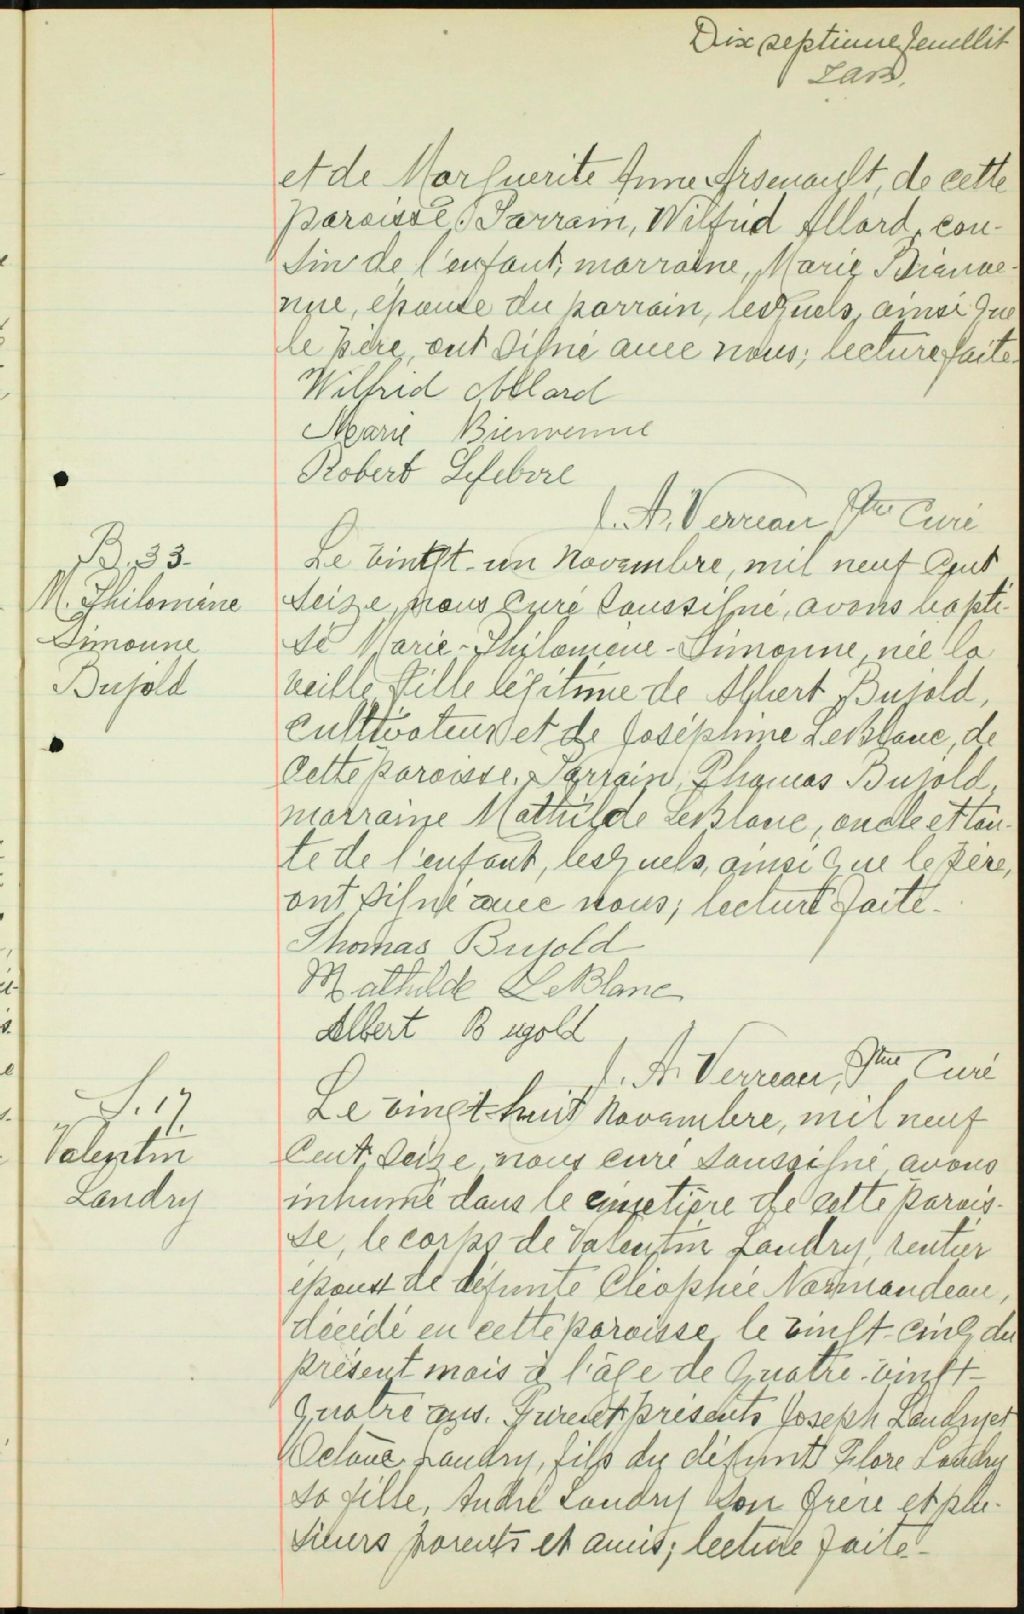 Dix septième feuillet
et de Marguerite Anne Arsenault, de cette
paroisse. Parrain, Wilfrid Allard, cou-
sin de l'enfant, marraine, Marie Bienve-
nue, épouse du parrain, lesquels, ainsi que
le père, ont signé avec nous; lecture faite.
Wilfrid Allard
Marie Bienvenue
Robert Lefebvre
J. A. Verreau Ptre Curé
B. 33.
M. Philomène
Simonne
Bujold
Le vingt-un Novembre, mil neuf Cent
seize, nous Curé soussigné, avons bapti-
sé Marie-Philomène-Simonne, née la
veille, fille légitime de Albert Bujold,
cultivateur et de Joséphine LeBlanc, de
cette paroisse. Parrain, Thomas Bujold,
marraine Mathilde LeBlanc, oncle et tan-
te de l'enfant, lesquels, ainsi que le père,
ont signé avec nous; lecture faite.
Thomas Bujold
Mathilde LeBlanc
Albert Bugold
J. A. Verreau, Ptre Curé
S. 17.
Valentin
Landry
Le vingt huit Novembre, mil neuf
Cent seize, nous curé soussigné, avons
inhumé dans le cimetière de cette parois-
se, le corps de Valentin Landry, rentier
époux de défunte Cléophée Normandeau,
décédé en cette paroisse, le vingt-cinq du
présent mois à l'âge de quatre-vingt-
quatre ans. Furent présents Joseph Landry et
Octave Landry, fils du défunt Flore Landry
sa fille, André Landry son frère et plu-
sieurs parents et amis; lecture faite-